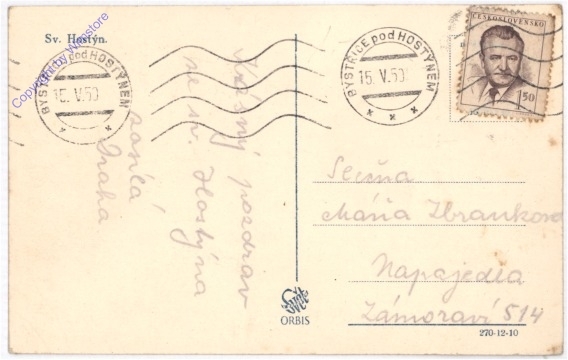 Sv. Hostýn.
Copyright by Wenstore
BYSTŘICE pod HOSTÝNEM
15. V. 50
BYSTŘICE pod HOSTÝNEM
15. V. 50
ČESKOSLOVENSKO
50
pozdrav
ze sv. Hostýna
Slečna
Mária
Napajedla
Zámoraví 514
Svět
ORBIS
270-12-10